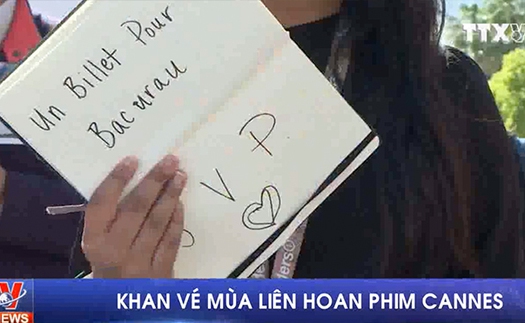 TTXV
Un Billet Pour
Bacurau
V P
ders
V
NEWS
KHAN VÉ MÙA LIÊN HOAN PHIM CANNES